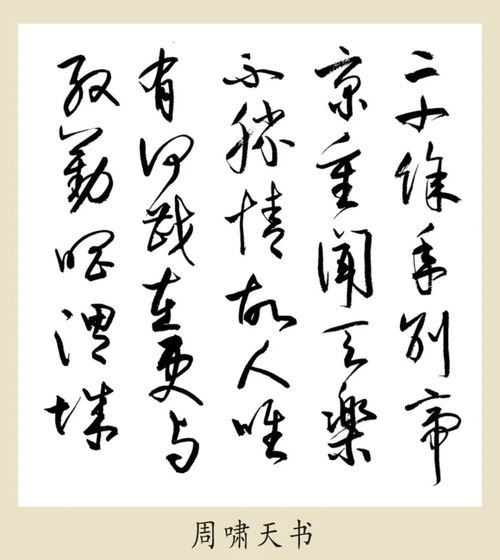 二十馀年别帝
京重闻天樂
不勝情故人唯
有何戡在更与
殷勤唱渭城
周啸天书